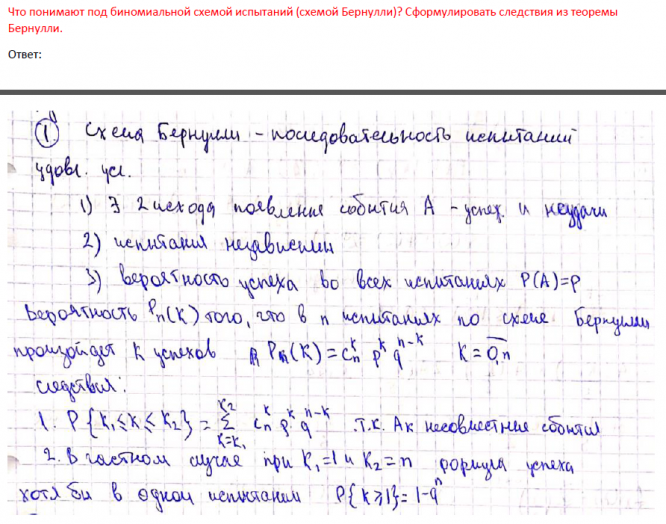 Что понимают под биномиальной схемой испытаний (схемой Бернулли)? Сформулировать следствия из теоремы
Бернулли.
Ответ:
① Схема Бернулли – последовательность испытаний
удовл. усл.
1) ∃ 2 исхода появление события A – успех и неудачи
2) испытания независимы
3) вероятность успеха во всех испытаниях P(A)=p
Вероятность Pₙ(k) того, что в n испытаниях по схеме Бернулли
произойдет k успехов Pₙ(k) = Cₙᵏ pᵏ qⁿ⁻ᵏ k = 0,n
следствия:
1. P{k₁≤k≤k₂} = Σ_{k=k₁}^{k₂} Cₙᵏ pᵏ qⁿ⁻ᵏ т.к. Aк несовместные события
2. В частном случае при k₁=1 и k₂=n формула успеха
хотя би в одном испытании P{k≥1}=1-qⁿ